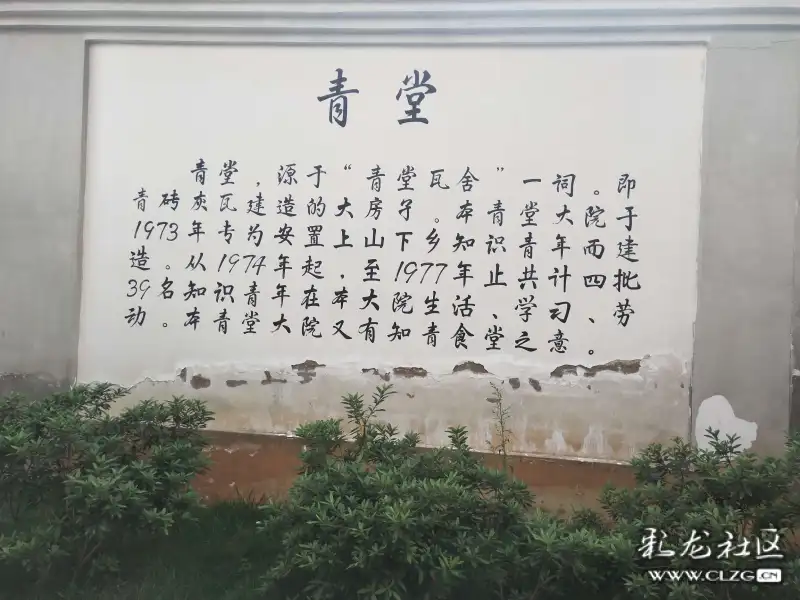 青堂
青堂,源于“青堂瓦舍”一词。即
青砖灰瓦建造的大房子。本青堂大院于
1973年专为安置上山下乡知识青年而建
造。从1974年起,至1977年止共计四批
39名知识青年在本大院生活、学习、劳
动。本青堂大院又有知青食堂之意。
彩龙社区
WWW.CLZG.CN